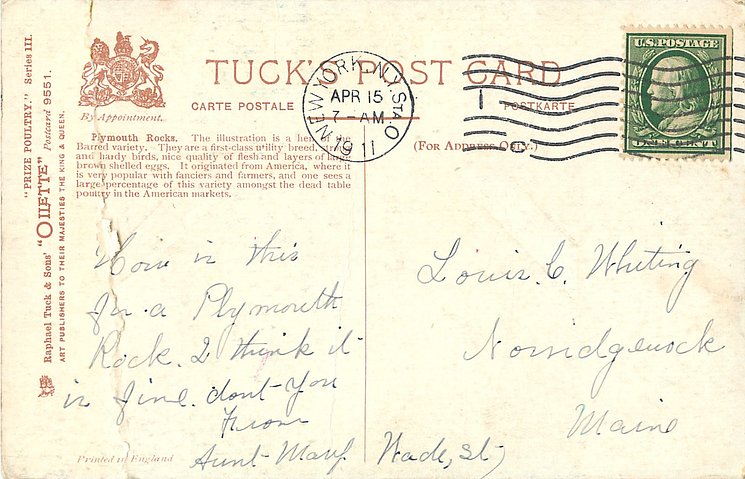 "PRIZE POULTRY." Series III.
Raphael Tuck & Sons' "OILETTE" Postcard 9551.
ART PUBLISHERS TO THEIR MAJESTIES THE KING & QUEEN.
By Appointment.
TUCK'S POST CARD
CARTE POSTALE
POSTKARTE
(For Address Only.)
Plymouth Rocks. The illustration is a hen of the
Barred variety. They are a first-class utility breed,
and hardy birds, nice quality of flesh and layers of large
brown shelled eggs. It originated from America, where it
is very popular with fanciers and farmers, and one sees a
large percentage of this variety amongst the dead table
poultry in the American markets.
NEW YORK, N.Y. STA O
APR 15
7-AM
1911
1
C
U.S. POSTAGE
ONE CENT 1
How is this
for a Plymouth
Rock. I think it
is fine. dont You
From
Aunt Mary Wade, St,
Louis. C. Whiting
Norridgewock
Maine
Printed in England